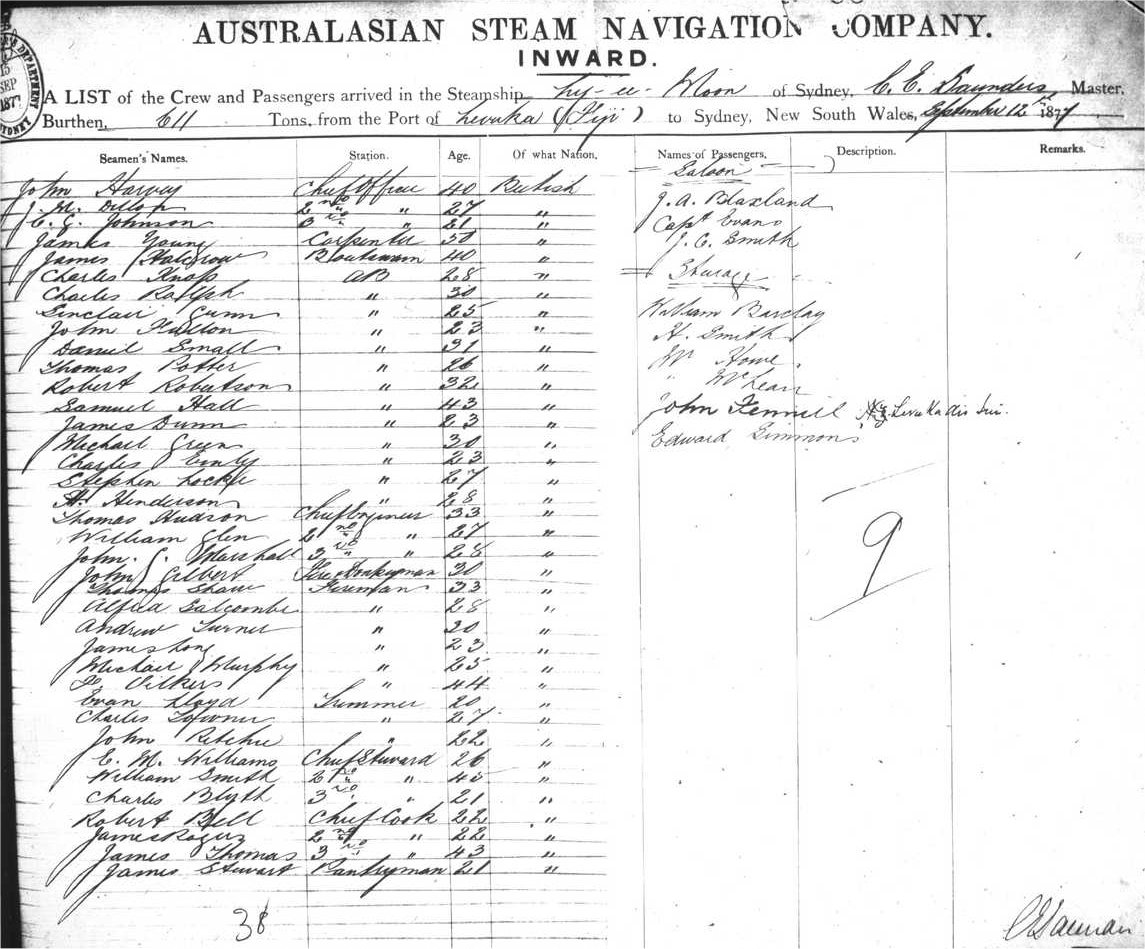 AUSTRALASIAN STEAM NAVIGATION COMPANY.
INWARD.
A LIST of the Crew and Passengers arrived in the Steamship Ly-ee-Moon of Sydney, C. E. Saunders, Master,
Burthen, 611 Tons, from the Port of Levuka (Fiji) to Sydney, New South Wales, September 12th 1877
15
SEP
1877
DEPARTMENT
SYDNEY
Seamen's Names. Station. Age. Of what Nation. Names of Passengers. Description. Remarks.
Saloon
John Harvey Chief Officer 40 British
J. A. Blaxland
J. M. Dillon 2nd " 27 "
C. G. Johnson 3rd " 21 "
Capt Evans
James Young Carpenter 50 "
J. C. Smith
James Boatswain 40 "
Charles Knap AB 28 "
Steerage
Charles Ralph " 30 "
Sinclair Gunn " 25 "
William Barclay
John " 23 "
H. Smith
Daniel Small " 31 "
Mr Howe
Thomas Potter " 26 "
Robert Robertson " 32 "
" McLean
Samuel Hall " 43 "
John Fennell
James Dunn " 23 "
Michael Green " 30 "
Edward Simmons
Charles Emily " 23 "
Stephen Locke " 27 "
H. Henderson " 28 "
Thomas Hudson Chief Engineer 33 "
William Glen 2nd " 27 "
John G. Marshall 3rd " 28 "
9
John Gilbert Fire & Donkeyman 30 "
Thomas Shaw Fireman 33 "
Alfred Salcombe " 28 "
Andrew Turner " 30 "
James Long " 23 "
Michael Murphy " 25 "
Vickers " 44 "
Evan Lloyd Trimmer 20 "
Charles " 27 "
John Ritchie " 22 "
C. M. Williams Chief Steward 26 "
William Smith 2nd " 45 "
Charles Blyth 3rd " 21 "
Robert Bell Chief Cook 22 "
James Rogers 2nd " 22 "
James Thomas 3rd " 43 "
James Stewart Pantryman 21 "
38